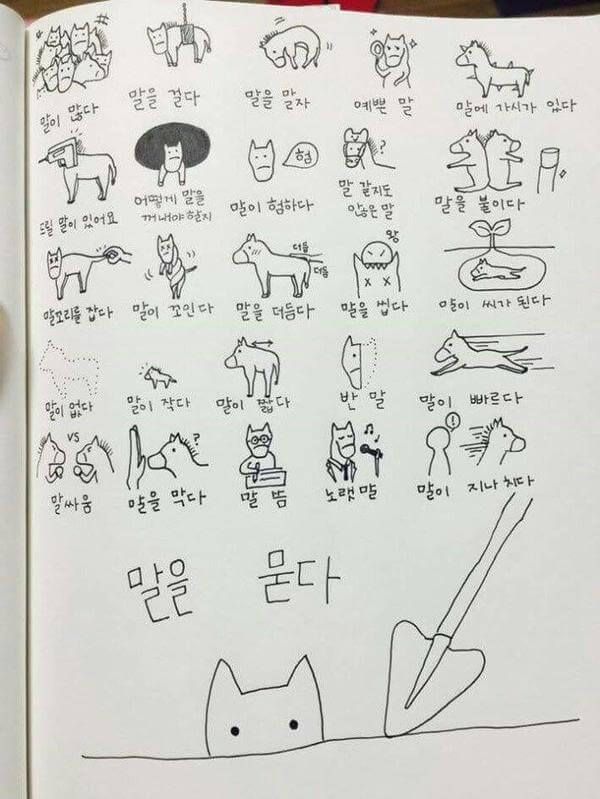 말이 많다
말을 걸다
말을 말자
예쁜 말
말에 가시가 있다
드릴 말이 있어요
어떻게 말을
꺼내야 할지
말이 험하다
험
말 같지도
않은 말
?
말을 붙이다
말꼬리를 잡다
말이 꼬인다
말을 더듬다
더듬
더듬
말을 씹다
왕
말이 씨가 된다
말이 없다
말이 작다
말이 짧다
반 말
말이 빠르다
VS
말싸움
?
말을 막다
말 뜸
노랫말
!
말이 지나치다
말을 묻다